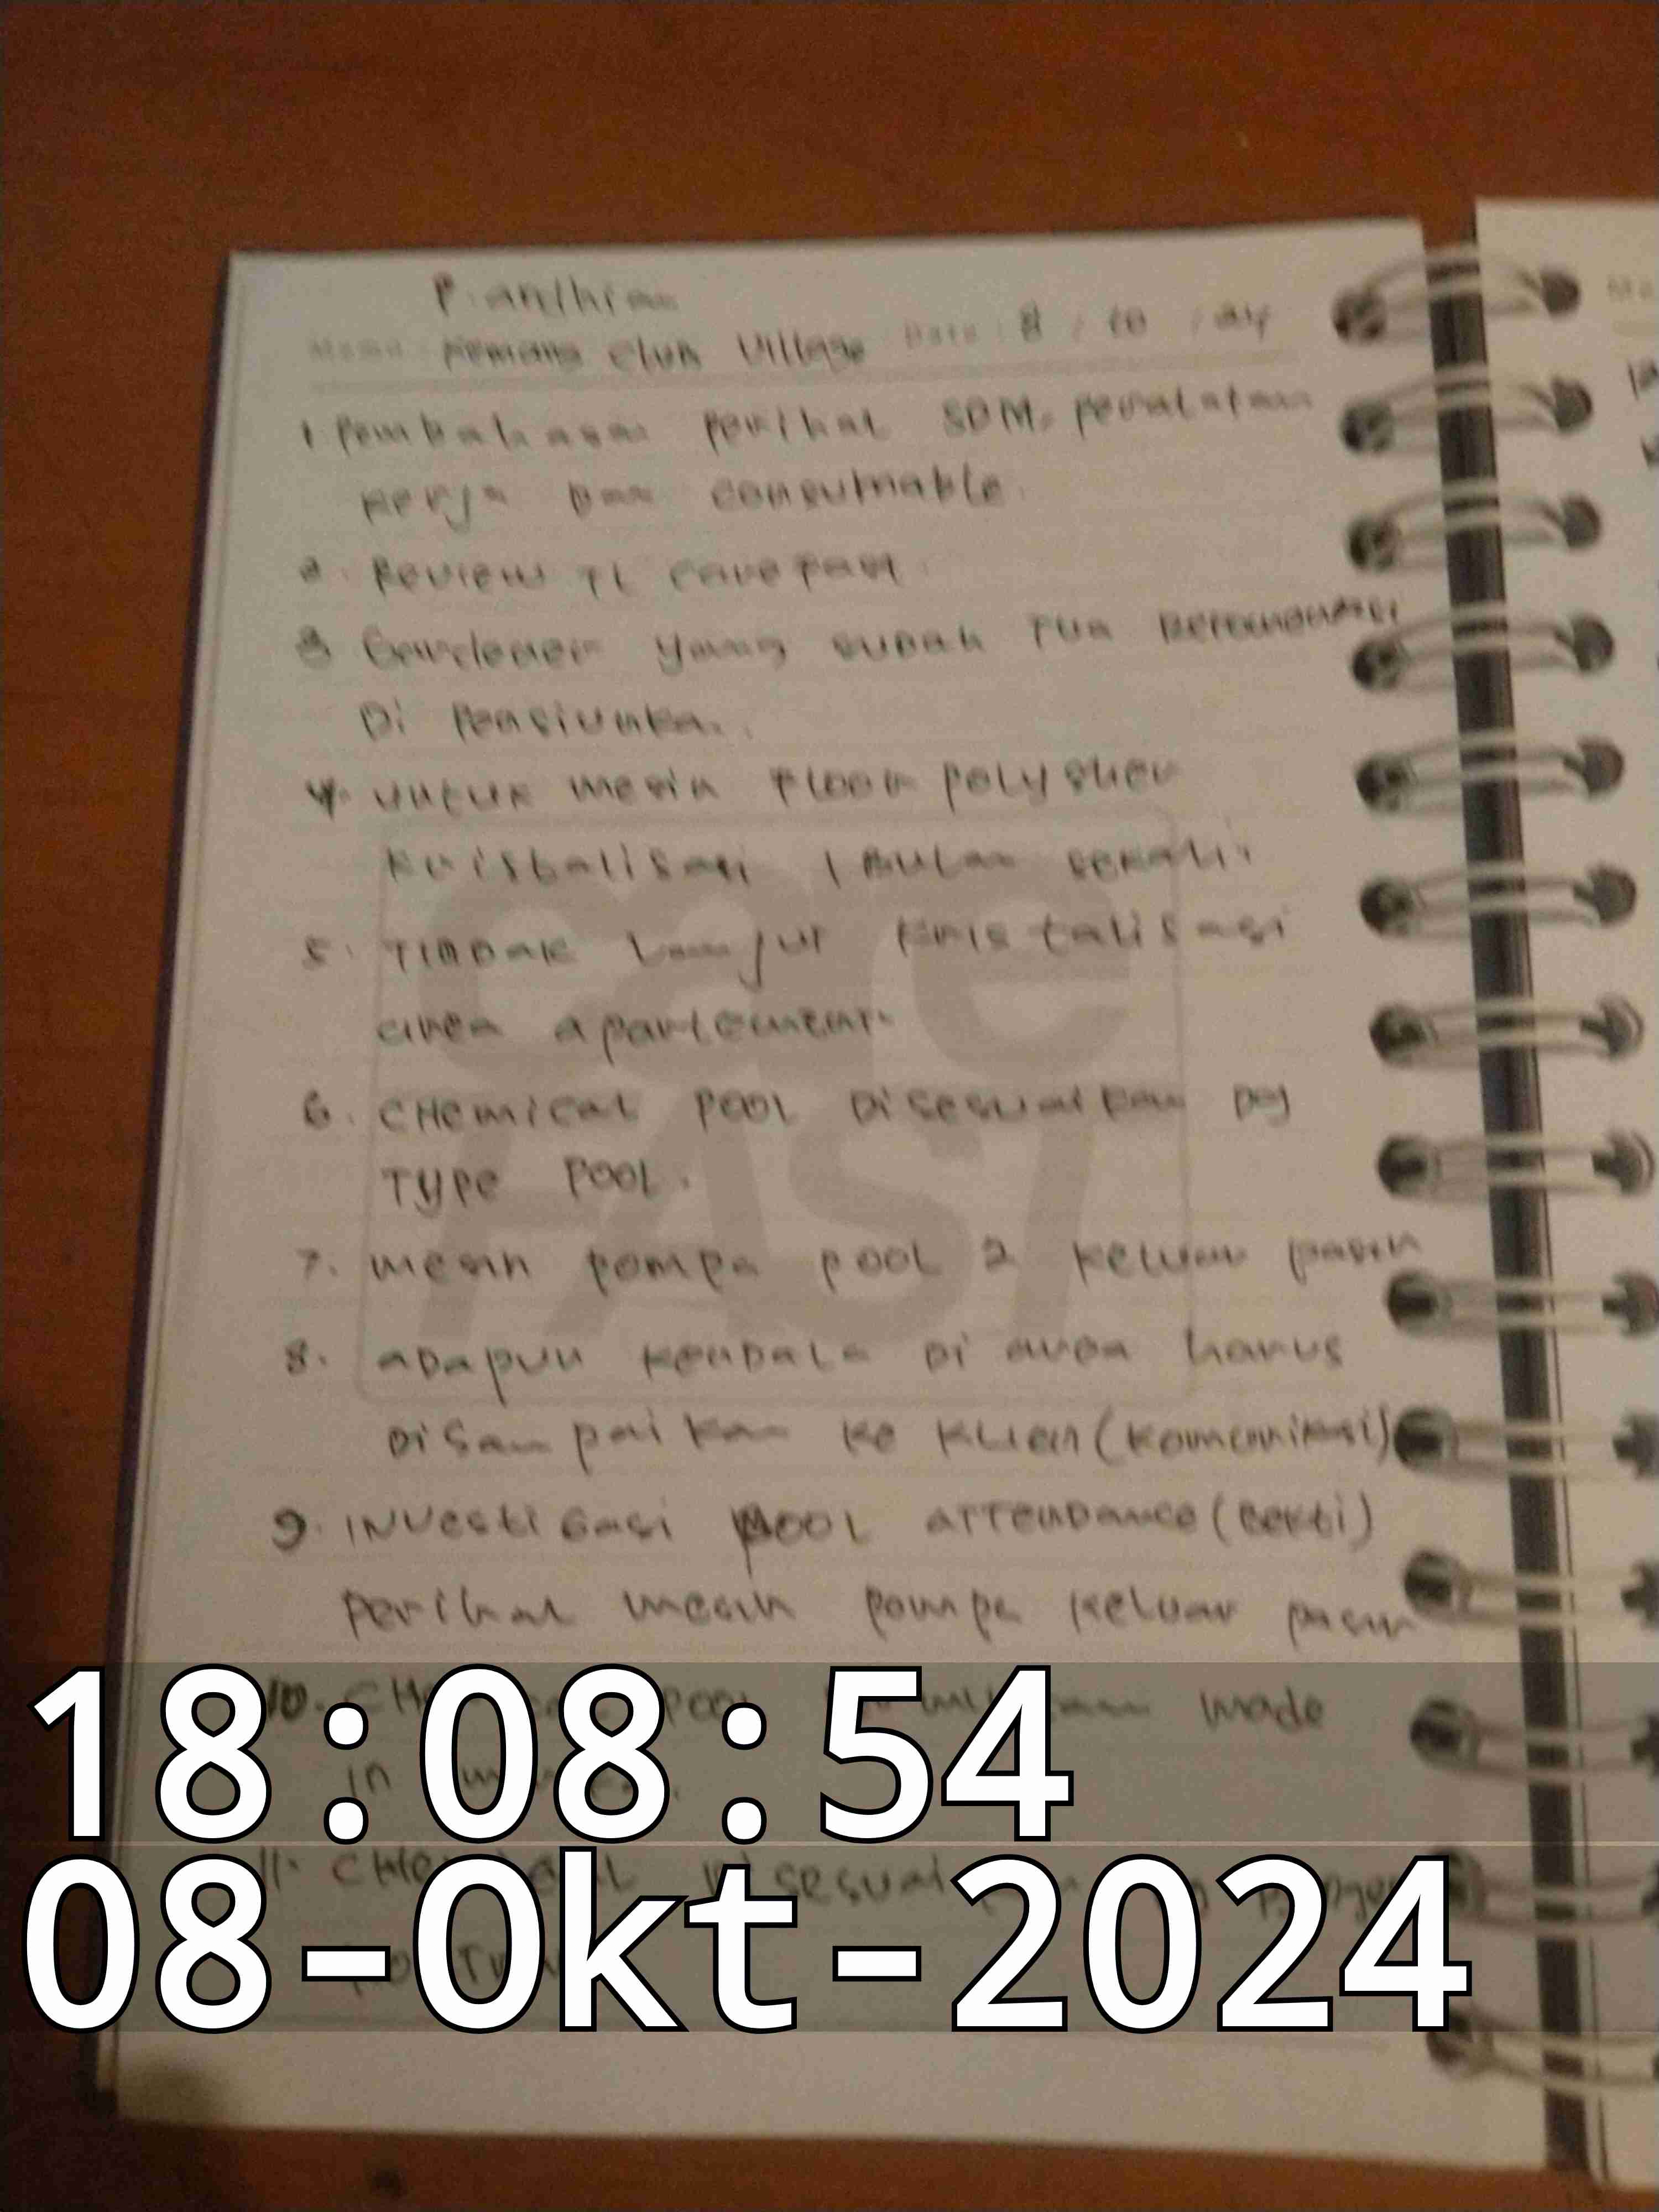 P. andhian
Name: Kemang Club Village Date: 8 / 10 / 24
1 Pembahasan perihal SDM, peralatan
kerja Dan consumable.
2. Review TL Carefast.
3 Gardener yang sudah Tua
Di Pensiunka.
4. untuk mesin Floor polysher
Kristalisasi 1 Bulan sekali.
5. TINDAK Lanjut Kristalisasi
area apartement.
6. CHemical POOL Disesuaikan Dg
Type POOL.
7. mesin pompa pool 2 keluar pasir
8. aDapun kenDala Di area harus
Disampaikan ke Klien (Komunikasi)
9. INVestiGasi POOL ATTenDance (Bekti)
perihal mesin pompa keluar pasir
10. POOL made
in
11.
care
FAST
18:08:54
08-Okt-2024